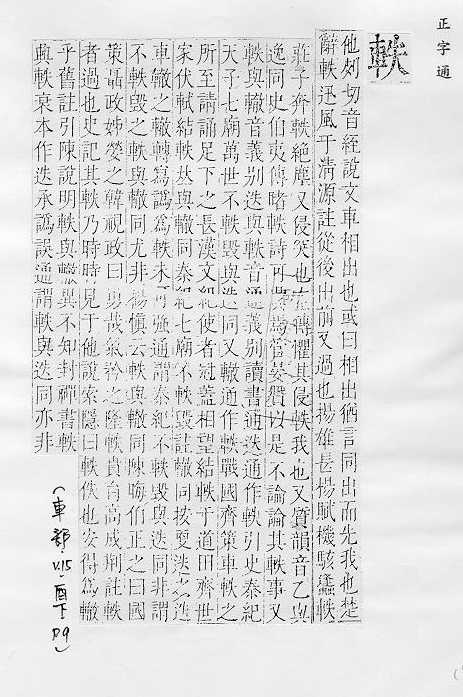 正字通
軼
他刻切音絰說文車相出也或曰相出猶言同出而先我也楚
辭軼迅風于清源註從後出前又過也揚雄長楊賦機駭蠭軼
莊子奔軼絶塵又侵突也左傳懼其侵軼我也又質韻音乙與
逸同史伯夷傳睹軼詩可異焉管晏贊以是不論論其軼事又
軼與轍音義别迭與軼音通義别讀書通迭通作軼引史秦紀
天子七廟萬世不軼毁與迭同又轍通作軼戰國齊策車軼之
所至請誦足下之長漢文紀使者冠蓋相望結軼于道田齊世
家伏軾結軼茲與轍同秦紀七廟不軼毁註轍同按更迭 迭
車轍之轍轉寫譌爲軼未可强通謂秦紀不軼毁與迭同非謂
不軼毁之軼與轍同尤非楊愼云軼與轍同陳晦伯正之曰國
策聶政姊嫈之韓視政曰勇哉氣矜之隆軼賁育高成荆註軼
者過也史記其軼乃時時見于他說索隱曰軼佚也安得爲轍
乎舊註引陳說明軼與轍異不知封禪書軼
興軼衰本作迭承譌誤通謂軼與迭同亦非
(車部.V.15.酉下 P9)